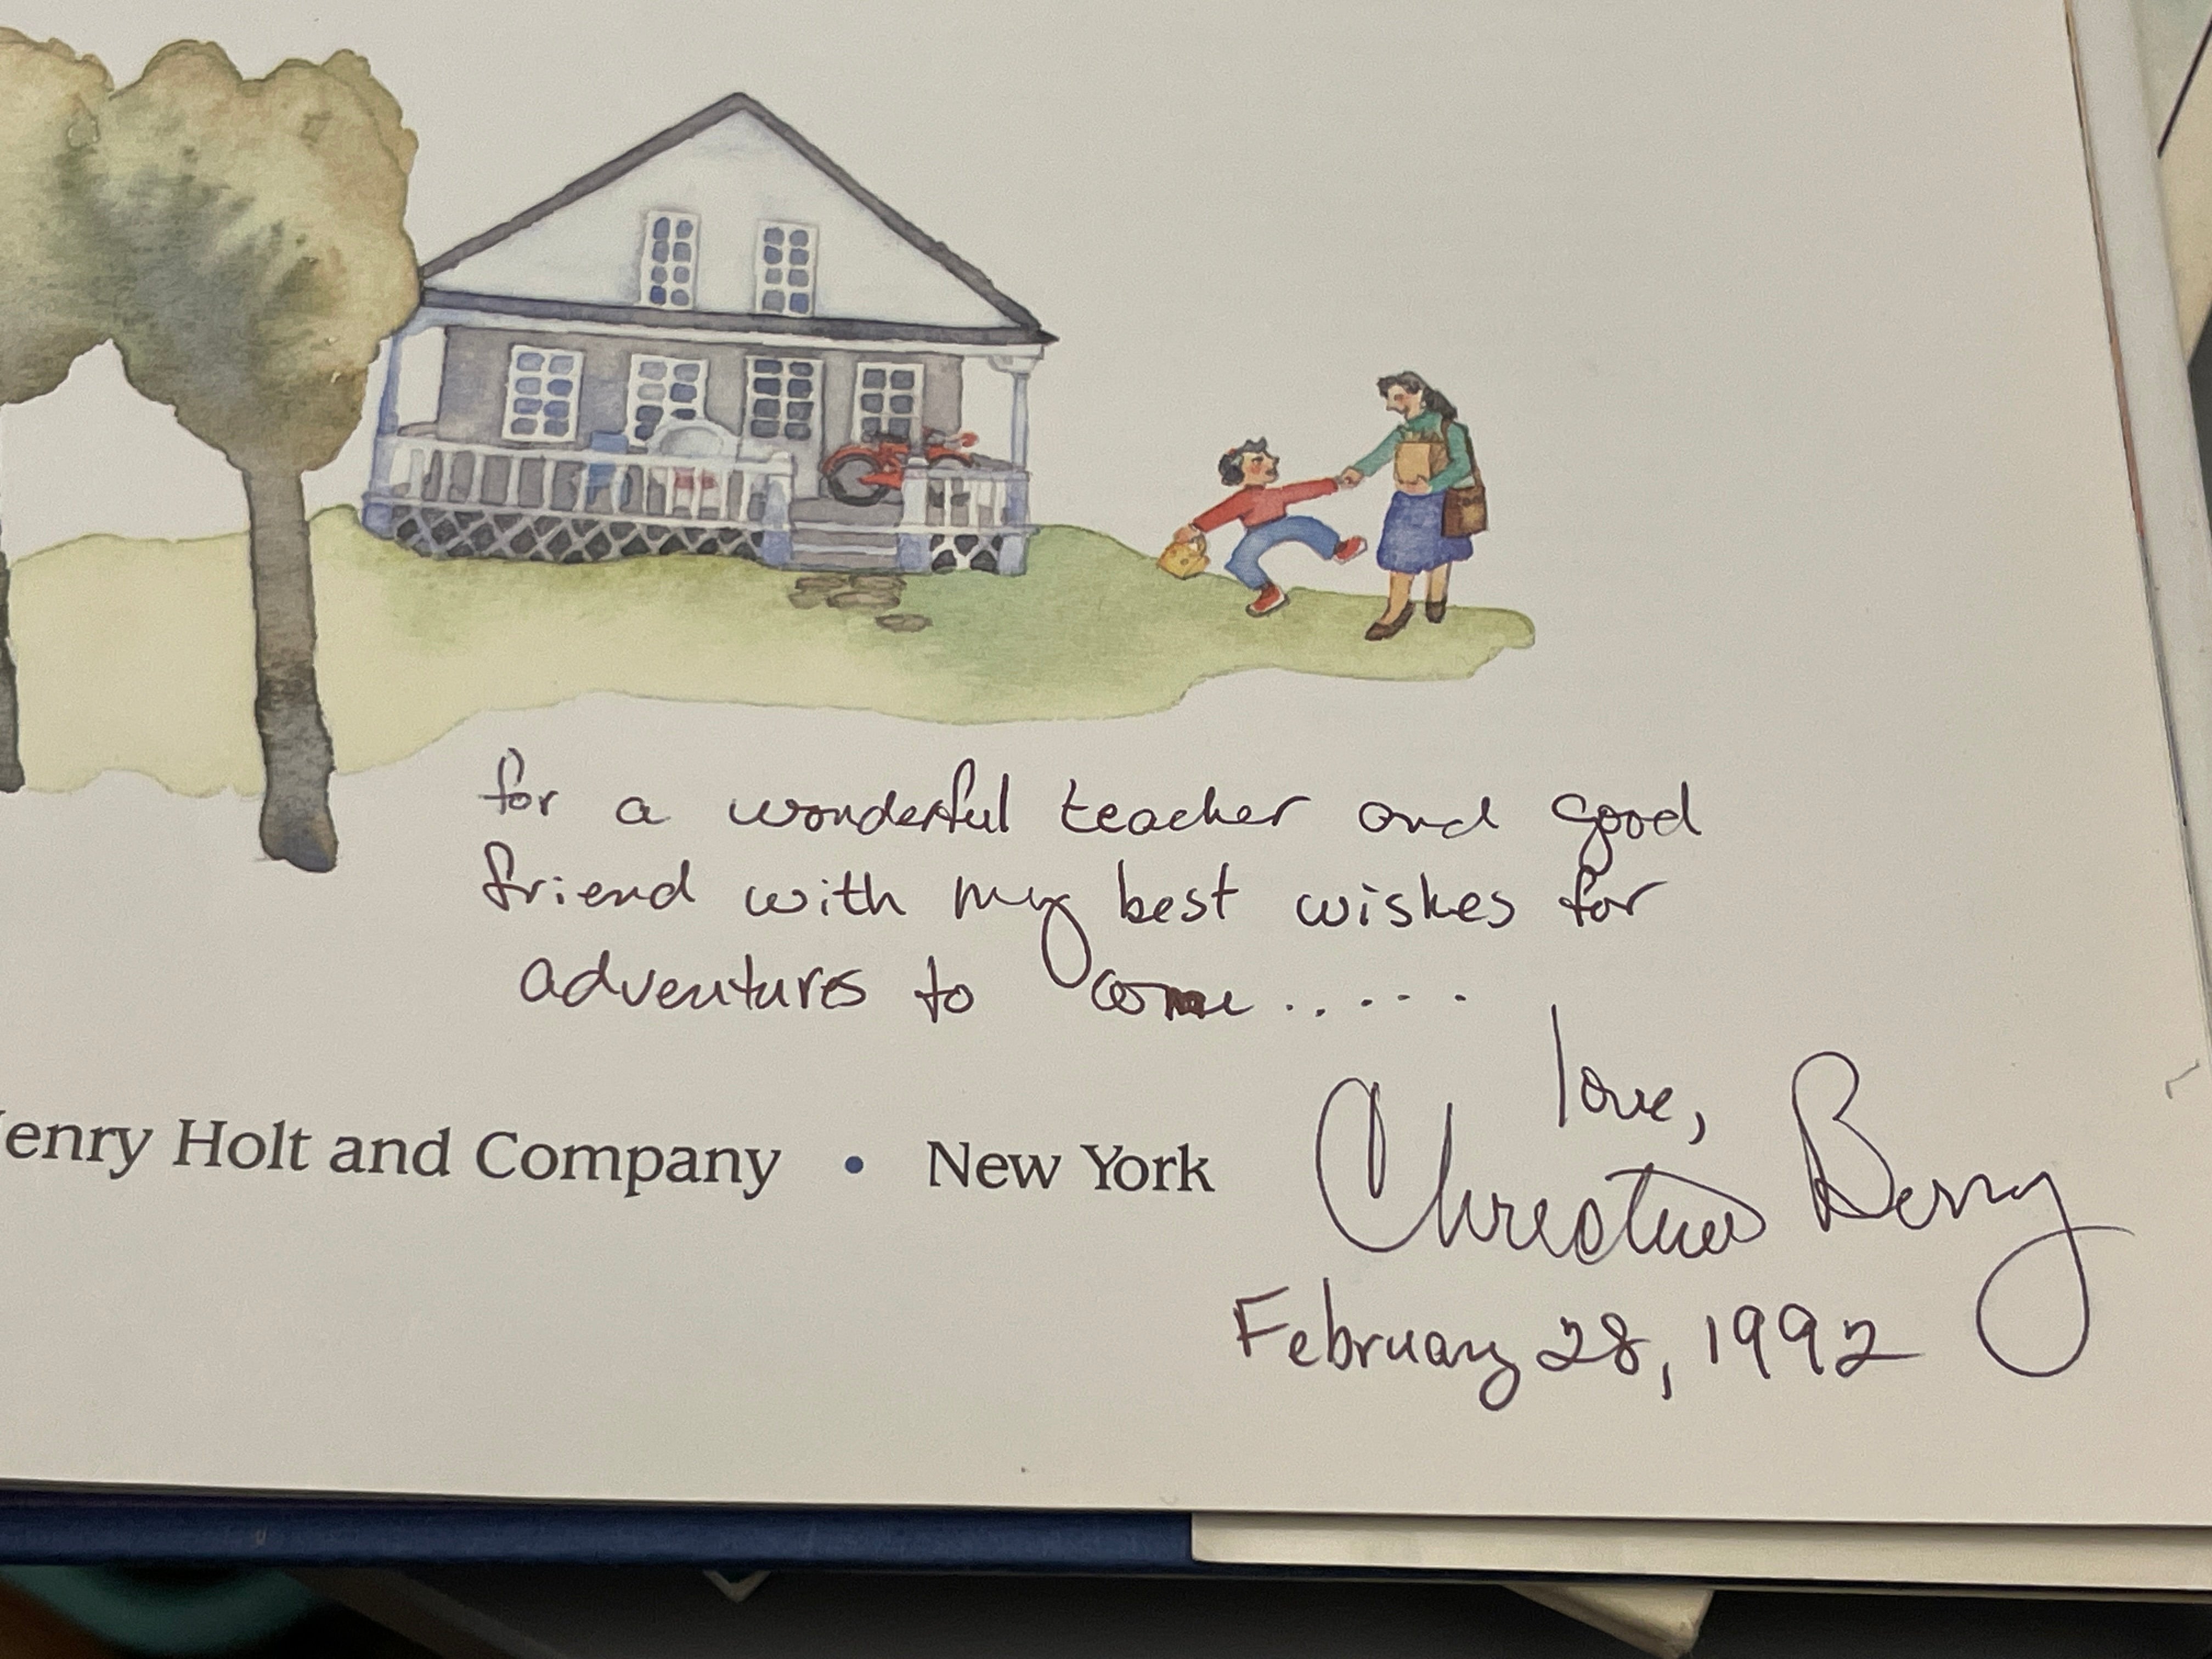 for a wonderful teacher and good
friend with my best wishes for
adventures to come.....
love,
enry Holt and Company • New York
Christine Berry
February 28, 1992